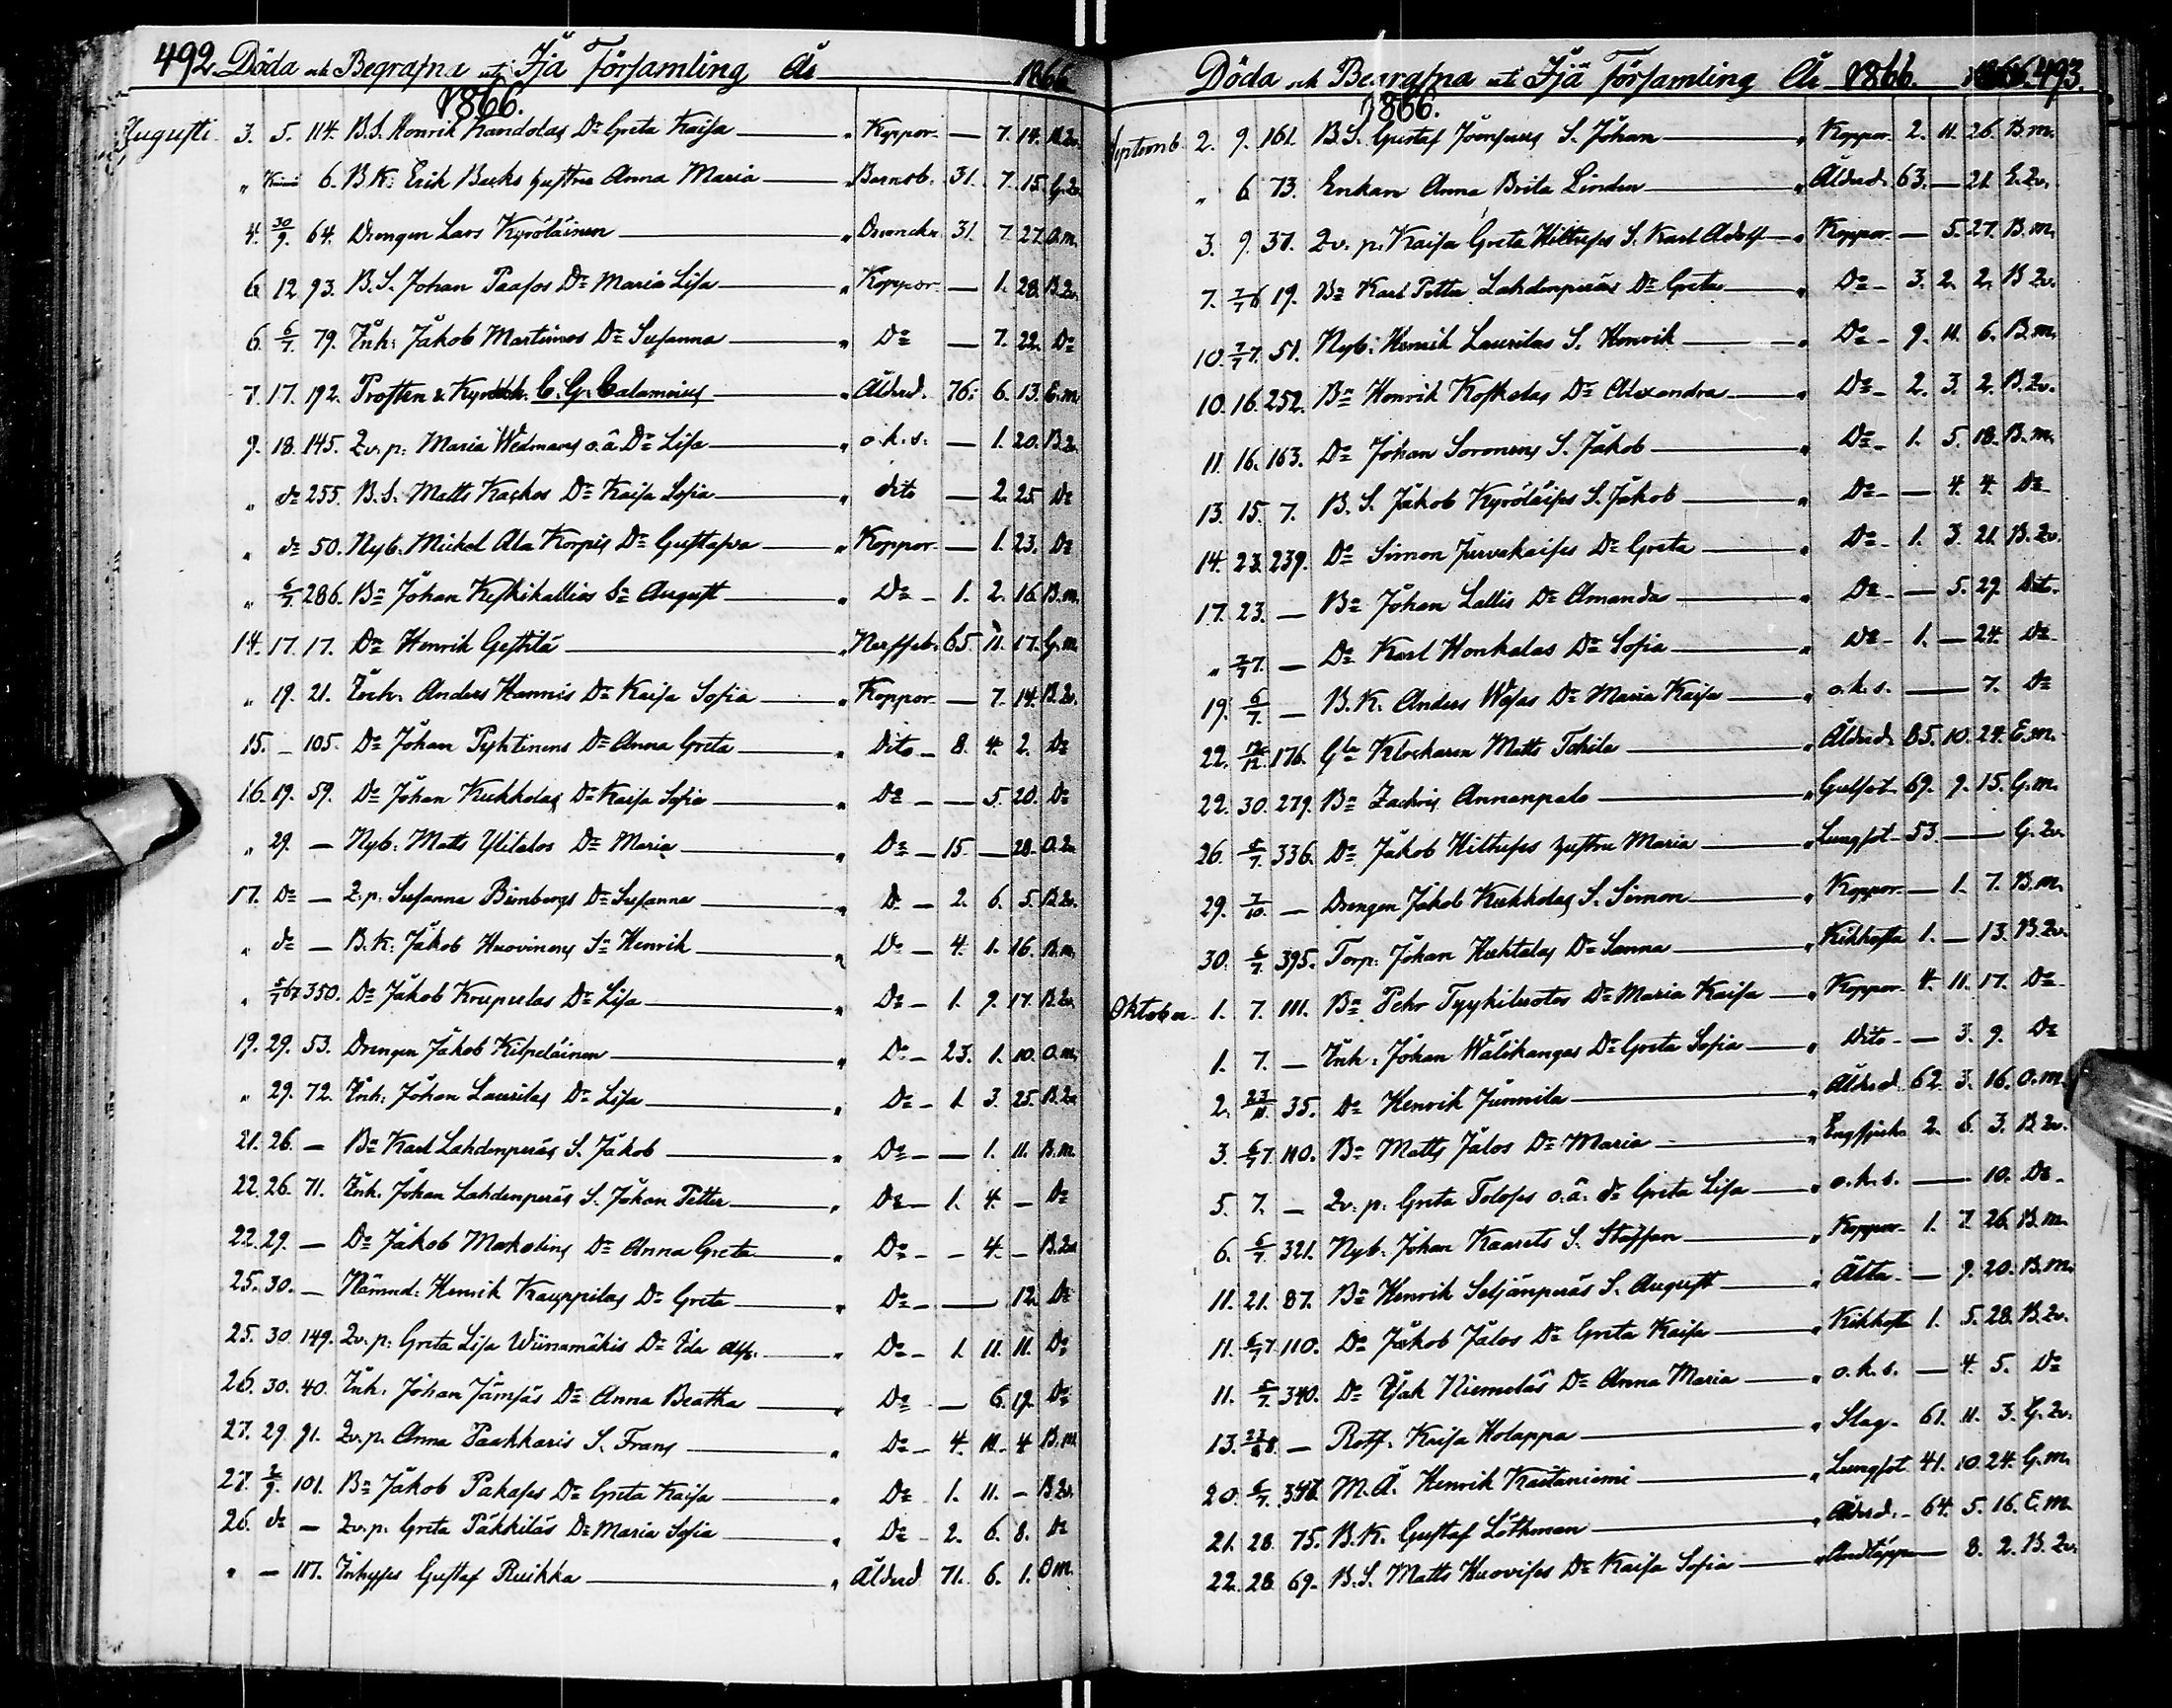 492 Döda och Begrafna uti Ijå Församling År 1866
1866.
Augusti 3. 5. 114. B.S. Henrik Kandolas Dr Greta Kaisa " Koppor — 7. 14. B.qv.
" 6. B.K. Erik Backs hustru Anna Maria " Barnsb. 31. 7. 15. G.qv.
4. 30/9. 64. Drengen Lars Kyröläinen " Drunckn. 31. 7. 27. O.m.
6. 12. 93. B.S. Johan Paasos Dr Maria Lisa " Koppor — 1. 28. B.qv.
6. 6/7. 79. Inh: Jakob Martimos Dr Susanna " Do — 7. 22. Do
7. 17. 192. Prosten & Kyrkoh. C. G. Calamnius " Ålderd. 76. 6. 13. E.m.
9. 18. 145. Qv. p. Maria Wedmans o.ä. Dr Lisa " o.k.s. — 1. 20. B.qv.
" do 255. B.S. Matts Kaskos Dr Kaisa Sofia " dito — 2. 25. Do
" do 50. Nyb. Mickel Ala Korpis Dr Gustafva " Koppor — 1. 23. Do
" 6/7. 286. Bn Johan Keskikallios Sn August " Do 1. 2. 16. B.m.
14. 17. 17. Do Henrik Gestilä " Nerffeb. 65. 11. 17. G.m.
" 19. 21. Inh. Anders Hannis Dr Kaisa Sofia " Koppor — 7. 14. B.qv.
15. — 105. Do Johan Pyhtinens Dr Anna Greta " Dito 8. 4. 2. Do
16. 19. 59. Do Johan Kukkolas Dr Kaisa Sofia " Do — 5. 20. Do
" 29. — Nyb. Matts Ylitalos Dr Maria " Do 15. — 28. O.qv.
17. Do — Q.p. Susanna Bimbergs Dr Susanna " Do 2. 6. 5. B.qv.
" do — B.K. Jakob Huovinens Sn Henrik " Do 4. 1. 16. B.m.
" 5/7 67. 350. Do Jakob Krupulas Dr Lisa " Do 1. 9. 17. B.qv.
19. 29. 53. Drengen Jakob Kilpeläinen " Do 23. 1. 10. O.m.
" 29. 72. Inh. Johan Laurilas Dr Lisa " Do 1. 3. 25. B.qv.
21. 26. — Bn Karl Lahdenperäs S. Jakob " Do — 1. 11. B.m.
22. 26. 71. Inh. Johan Lahdenperäs S. Johan Petter " Do 1. 4. — Do
22. 29. — Do Jakob Markolins Dr Anna Greta " Do — 4. — B.qv.
25. 30. — Nämnd. Henrik Kauppilas Dr Greta " Do — 12. Do
25. 30. 149. Qv. p. Greta Lisa Wiinamäkis Dr Ida " Do 1. 11. 11. Do
26. 30. 40. Inh. Johan Jämsäs Dr Anna Beatha " Do — 6. 19. Do
27. 29. 91. Qv. p. Anna Paakkaris S. Frans " Do 4. 11. 4 B.m.
27. 2/9. 101. Bn Jakob Pakases Dr Greta Kaisa " Do 1. 11. — B.qv.
26. do — Qv. p. Greta Päkkiläs Dr Maria Sofia " Do 2. 6. 8. Do
" — 117. Inhyses Gustaf Ruikka " Ålderd 71. 6. 1. O.m.
Döda och Begrafna uti Ijå Församling År 1866. 493.
1866.
Septemb. 2. 9. 161. B.S. Gustaf Joensuus S. Johan " Koppor 2. 11. 26. B.m.
" 6 73. Enkan Anna Brita Linden " Ålderd. 63. — 21. E.qv.
3. 9. 37. Qv. p. Kaisa Greta Hiltuses S. Karl Adolf " Koppor — 5. 27. B.m.
7. 7/7 6 19. Bn Karl Petter Lahdenperäs Dr Greta " Do 3. 2. 2. B qv.
10. 7/7 7. 51. Nyb: Henrik Laurilas S. Henrik " Do 9. 11. 6. B.m.
10. 16. 252. Bn Henrik Koskelas Dr Alexandra " Do 2. 3. 2. B.qv.
11. 16. 163. Do Johan Soronens S. Jakob " Do 1. 5. 18. B.m.
13. 15. 7. B. S. Jakob Kyröläises S. Jakob " Do — 4. 4. Do
14. 23. 239. Do Simon Jurvakaises Dr Greta " Do 1. 3. 21. B.qv.
17. 23. — Bn Johan Lallis Dr Amanda " Do — 5. 29. Dito
" 7/7 7. — Do Karl Honkalas Dr Sofia " Do 1. — 24. Do
19. 6/7. — B.K. Anders Wasas Dr Maria Kaisa " o.k.s. — 7. Do
22. 12/12. 176. Gla Klockaren Matts Tohila " Ålderd. 85. 10. 24. E.m.
22. 30. 279. Bn Zachris Annanpalo " Gulsot 69. 9. 15. G.m.
26. 5/7. 336. Do Jakob Hiltuses hustru Maria " Lungsot 53. — G.qv.
29. 7/10. — Drengen Jakob Kukkolas S. Simon " Koppor — 1. 7. B.m.
30. 6/7. 395. Torp. Johan Huhtalas Dr Sanna " Kikhosta 1. — 13. B.qv.
Oktober 1. 7. 111. Bn Pehr Tyykiluotos Dr Maria Kaisa " Koppor 4. 11. 17. Do
1. 7. — Inh: Johan Wälikangas Dr Greta Sofia " Dito — 3. 9. Do
2. 23/11. 35. Do Henrik Junnila " Ålderd. 62. 3. 16. O.m.
3. 6/7 7. 110. Bn Matts Jalos Dr Maria " Engsjuk. 2. 6. 3. B qv.
5. 7. — Qv. p. Greta Toloses o.ä. dr Greta Lisa " o.k.s. — 10. Do
6. 6/7. 321. Nyb. Johan Kaarets S. Staffan " Koppor 1. 7. 26. B.m.
11. 21. 87. Bn Henrik Seljänperäs S. August " Ältta — 9. 20. B.m.
11. 6/7 7. 110. Do Jakob Jalos Dr Greta Kaisa " Kikhosta 1. 5. 28. B.qv.
11. 5/7. 340. Do Isak Niemeläs Dr Anna Maria " o.k.s. — 4. 5. Do
13. — Rotf. Kaisa Holappa " Slag. 61. 11. 3. G.qv.
20. 6/7. M.Å. Henrik Kaitaniemi " Lungsot 41. 10. 24. G.m.
21. 28. 75. B.K. Gustaf Löthman " Ålderd. 64. 5. 16. E.m.
22. 28. 69. B.S. Matts Huovises Dr Kaisa Sofia " Andtäppa — 8. 2. B.qv.